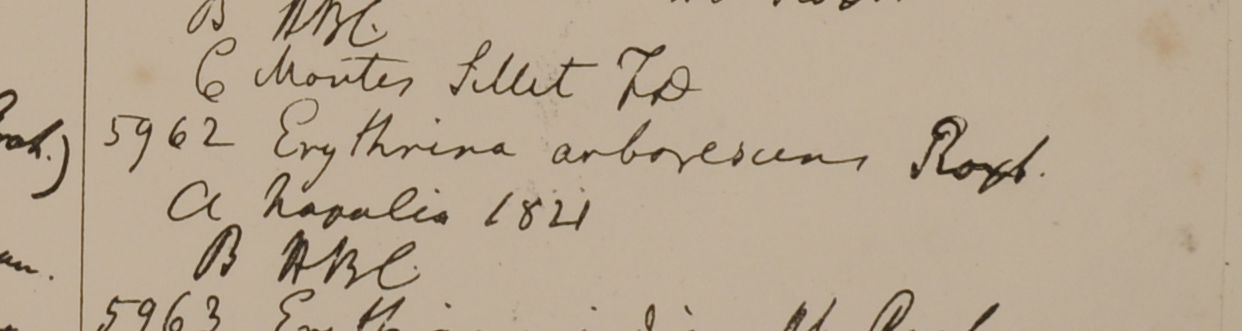 B HBC.
C Montes Sillet FD
5962 Erythrina arborescens Roxb.
a Napalia 1821
B HBC
5963 Erythrina indica